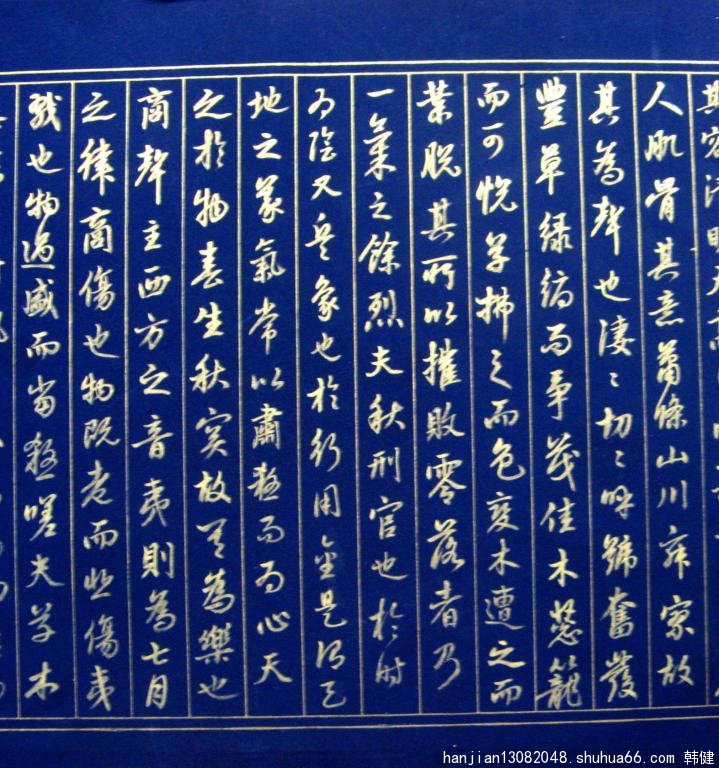 其容清明天高
人肌骨其意蕭條山川寂寥故
其為聲也淒〻切〻呼號奮發
豐草綠縟而爭茂佳木葱籠
而可悅草拂之而色變木遭之而
葉脫其所以摧敗零落者乃
一氣之餘烈夫秋刑官也於時
為陰又兵象也於行用金是謂天
地之義氣常以肅殺而為心天
之於物春生秋實故其為樂也
商聲主西方之音夷則為七月
之律商傷也物既老而悲傷夷
戮也物過盛而當殺嗟夫草木
hanjian13082048.shuhua66.com 韩健